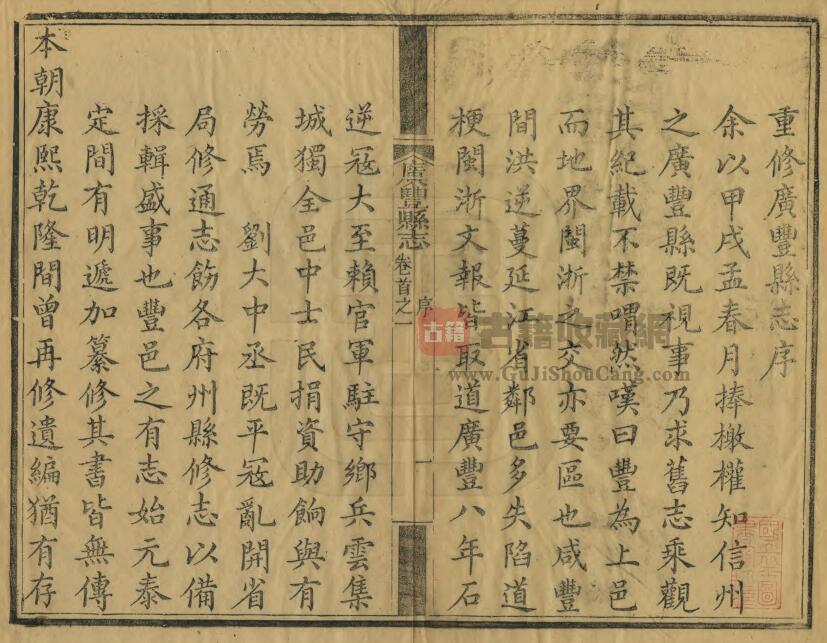 重修廣豐縣志序
余以甲戌孟春月捧檄權知信州
之廣豐縣既視事乃求舊志乘觀
其紀載不禁喟然嘆曰豐為上邑
而地界閩浙之交亦要區也咸豐
間洪逆蔓延江省鄰邑多失陷道
梗閩浙文報皆取道廣豐八年石
廣豐縣志
卷首之一
序
一
逆寇大至賴官軍駐守鄉兵雲集
城獨全邑中士民捐資助餉與有
勞焉 劉大中丞既平寇亂開省
局修通志飭各府州縣修志以備
採輯盛事也豐邑之有志始元泰
定間有明遞加纂修其書皆無傳
本朝康熙乾隆間曾再修遺編猶有存
古籍
古籍收藏網
www.GuJiShouCang.com